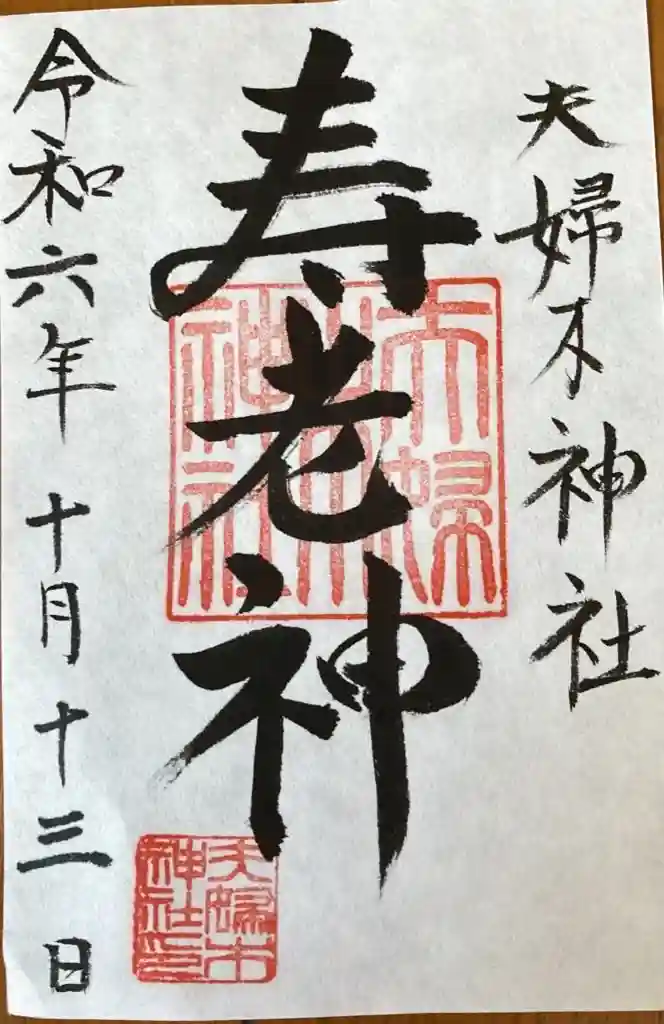 夫婦木神社
寿老神
令和六年 十月十三日
夫婦木神社
夫婦木神社印